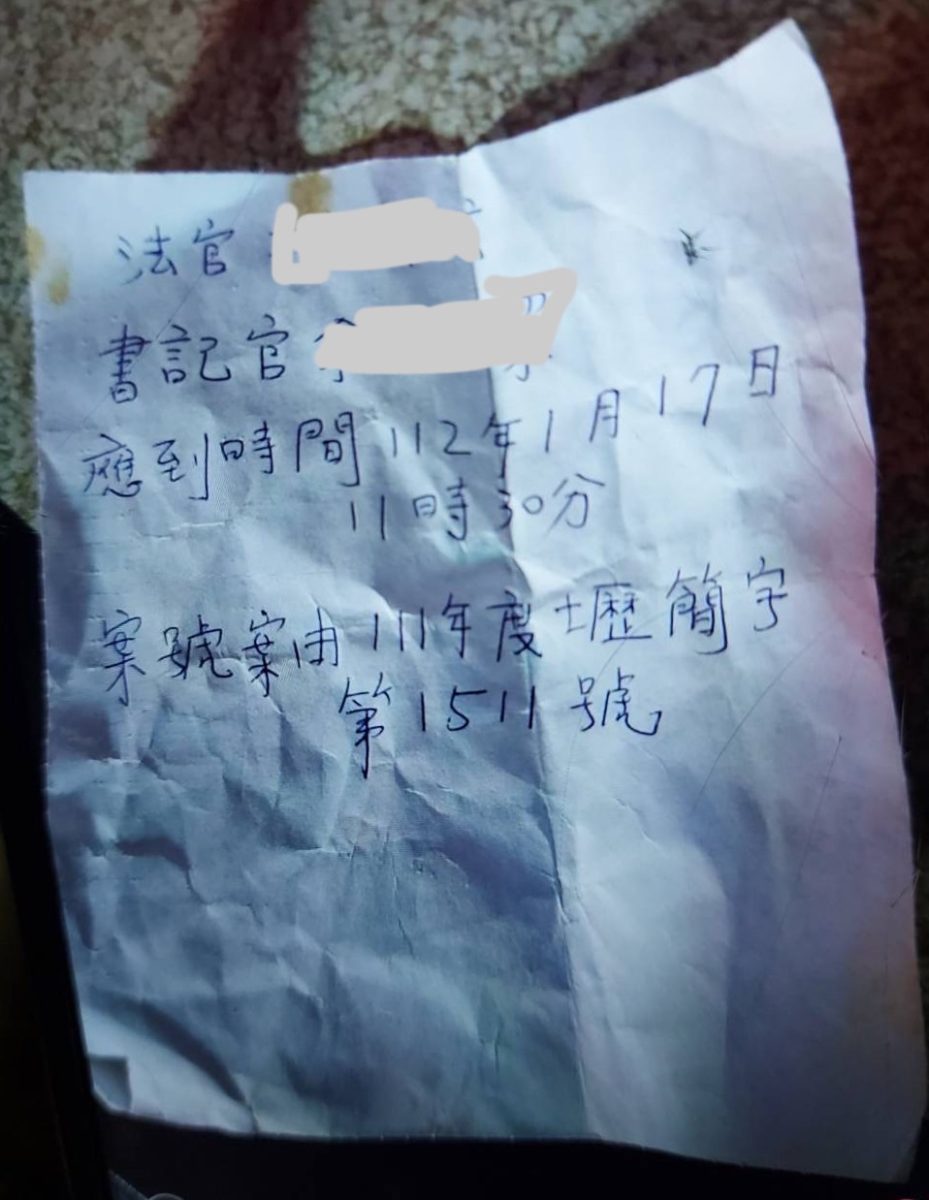 法官
書記官
應到時間112年1月17日
11時30分
案號案由111年度壢簡字
第1511號